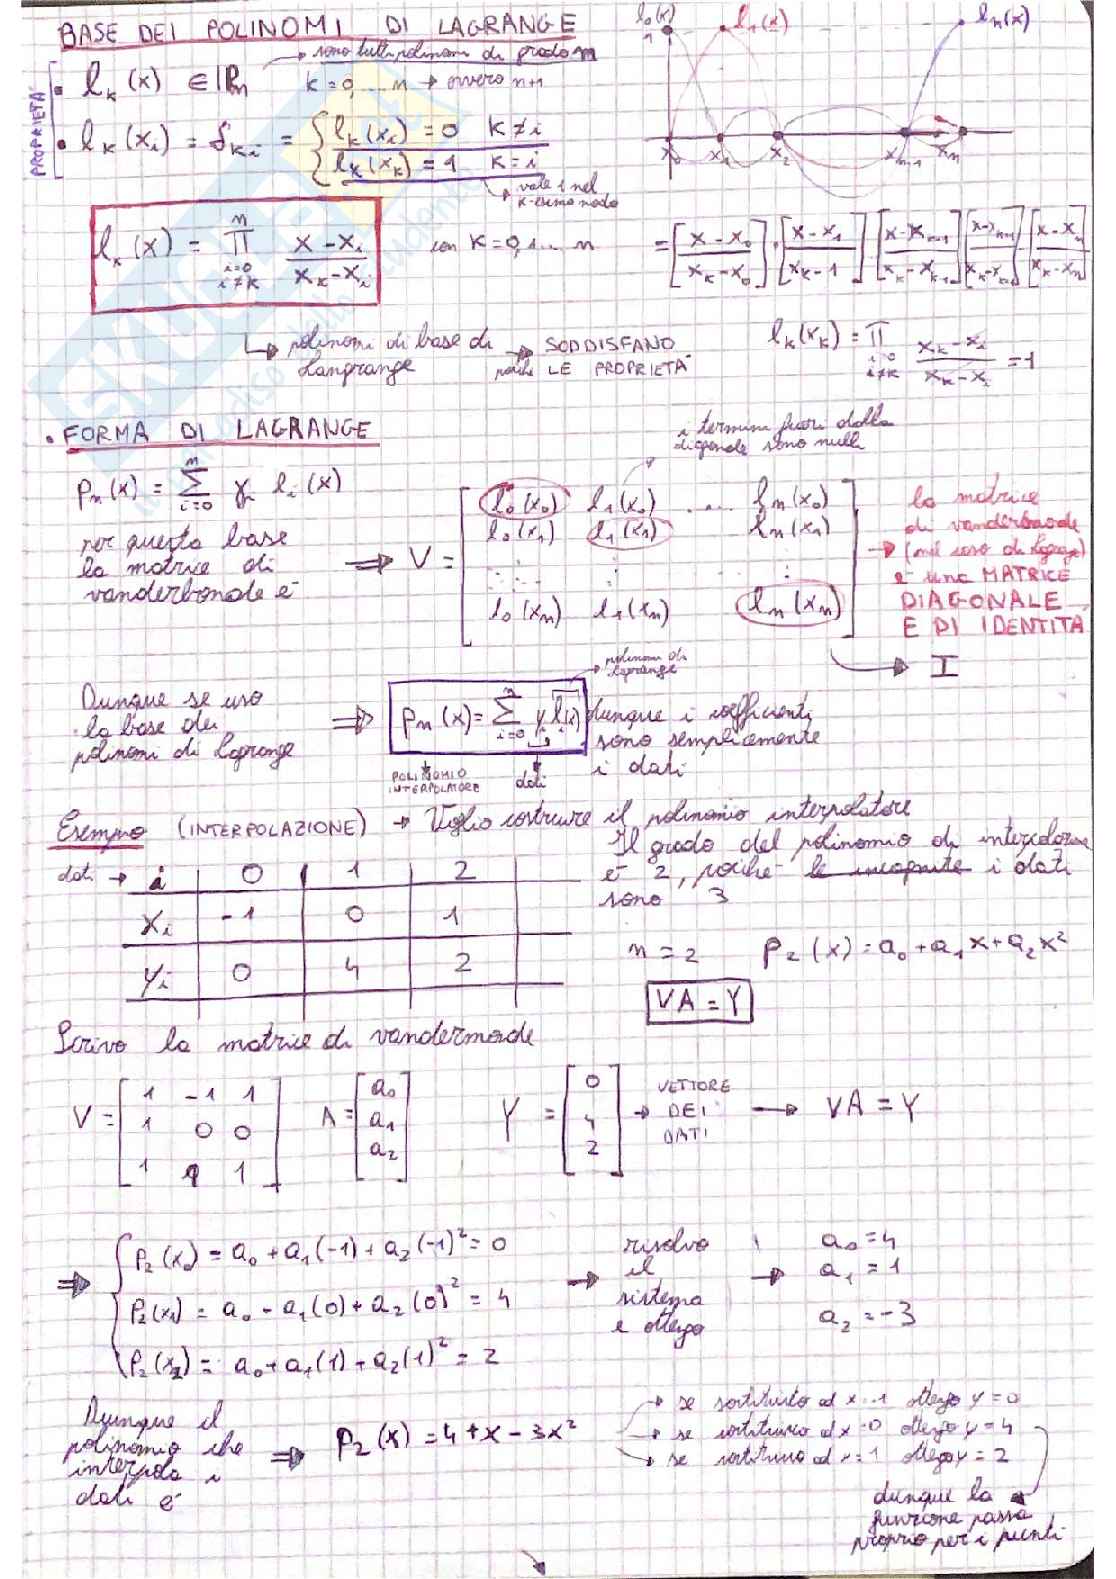 BASE DEI POLINOMI DI LAGRANGE
→ sono tutti polinomi di grado n
PROPRIETÀ
• l_k(x) ∈ ℙ_n   k=0,...n → ovvero n+1
• l_k(x_i) = δ_ki = { l_k(x_i) = 0   k≠i
l_k(x_k) = 1   k=i
→ vale 1 nel
k-esimo nodo
l_0(x)   l_1(x)   l_n(x)
1
x_0   x_1   x_2   x_n-1   x_n
l_k(x) = ∏ (i=0, i≠k; n) (x-x_i)/(x_k-x_i)   con k=0,1... n   = [(x-x_0)/(x_k-x_0)]·[(x-x_1)/(x_k-1)]·[(x-x_k-1)/(x_k-x_k-1)][(x-x_k+1)/(x_k-x_k+1)]·[(x-x_n)/(x_k-x_n)]
↳ polinomi di base di
Langrange
→ poichè SODDISFANO
LE PROPRIETÀ
l_k(x_k) = ∏ (i=0, i≠k) (x_k-x_i)/(x_k-x_i) = 1
• FORMA DI LAGRANGE
i termini fuori dalla
diagonale sono nulli
p_n(x) = Σ (i=0; n) γ_i l_i(x)
per questa base
la matrice di
vanderbonde è
⇒ V = [ l_0(x_0)   l_1(x_0)   ....   l_n(x_0)
l_0(x_1)   l_1(x_1)   l_n(x_1)
l_0(x_n)   l_1(x_n)   l_n(x_n) ]
→ la matrice
di vanderbonde
(nel caso di lagrange)
è una MATRICE
DIAGONALE
E DI IDENTITÀ
→ I
Dunque se uso
la base dei
polinomi di lagrange
⇒ p_n(x) = Σ (i=0; n) y_i l_i(x)
→ polinomi di
lagrange
POLINOMIO
INTERPOLATORE
dati
dunque i coefficienti
sono semplicemente
i dati
Esempio (INTERPOLAZIONE) → Voglio costruire il polinomio interpolatore
Il grado del polinomio di interpolazione
è 2, poichè le incognite i dati
sono 3
dati → i   0   1   2
x_i   -1   0   1
y_i   0   4   2
n = 2   p_2(x) = a_0 + a_1 x + a_2 x²
VA = Y
Scrivo la matrice di vandermonde
V = [ 1 -1 1
1 0 0
1 1 1 ]
A = [ a_0
a_1
a_2 ]
Y = [ 0
4
2 ]
→ VETTORE
DEI
DATI
→ VA = Y
⇒ { P_2(x_0) = a_0 + a_1(-1) + a_2(-1)² = 0
P_2(x_1) = a_0 - a_1(0) + a_2(0)² = 4
P_2(x_2) = a_0 + a_1(1) + a_2(1)² = 2
→ risolvo
il
sistema
e ottengo
→ a_0 = 4
a_1 = 1
a_2 = -3
Dunque il
polinomio che
interpola i
dati è
⇒ P_2(x) = 4 + x - 3x²
→ se sostituisco ad x=-1 ottengo y = 0
→ se sostituisco ad x=0 ottengo y = 4
→ se sostituisco ad x=1 ottengo y = 2
dunque la
funzione passa
proprio per i punti